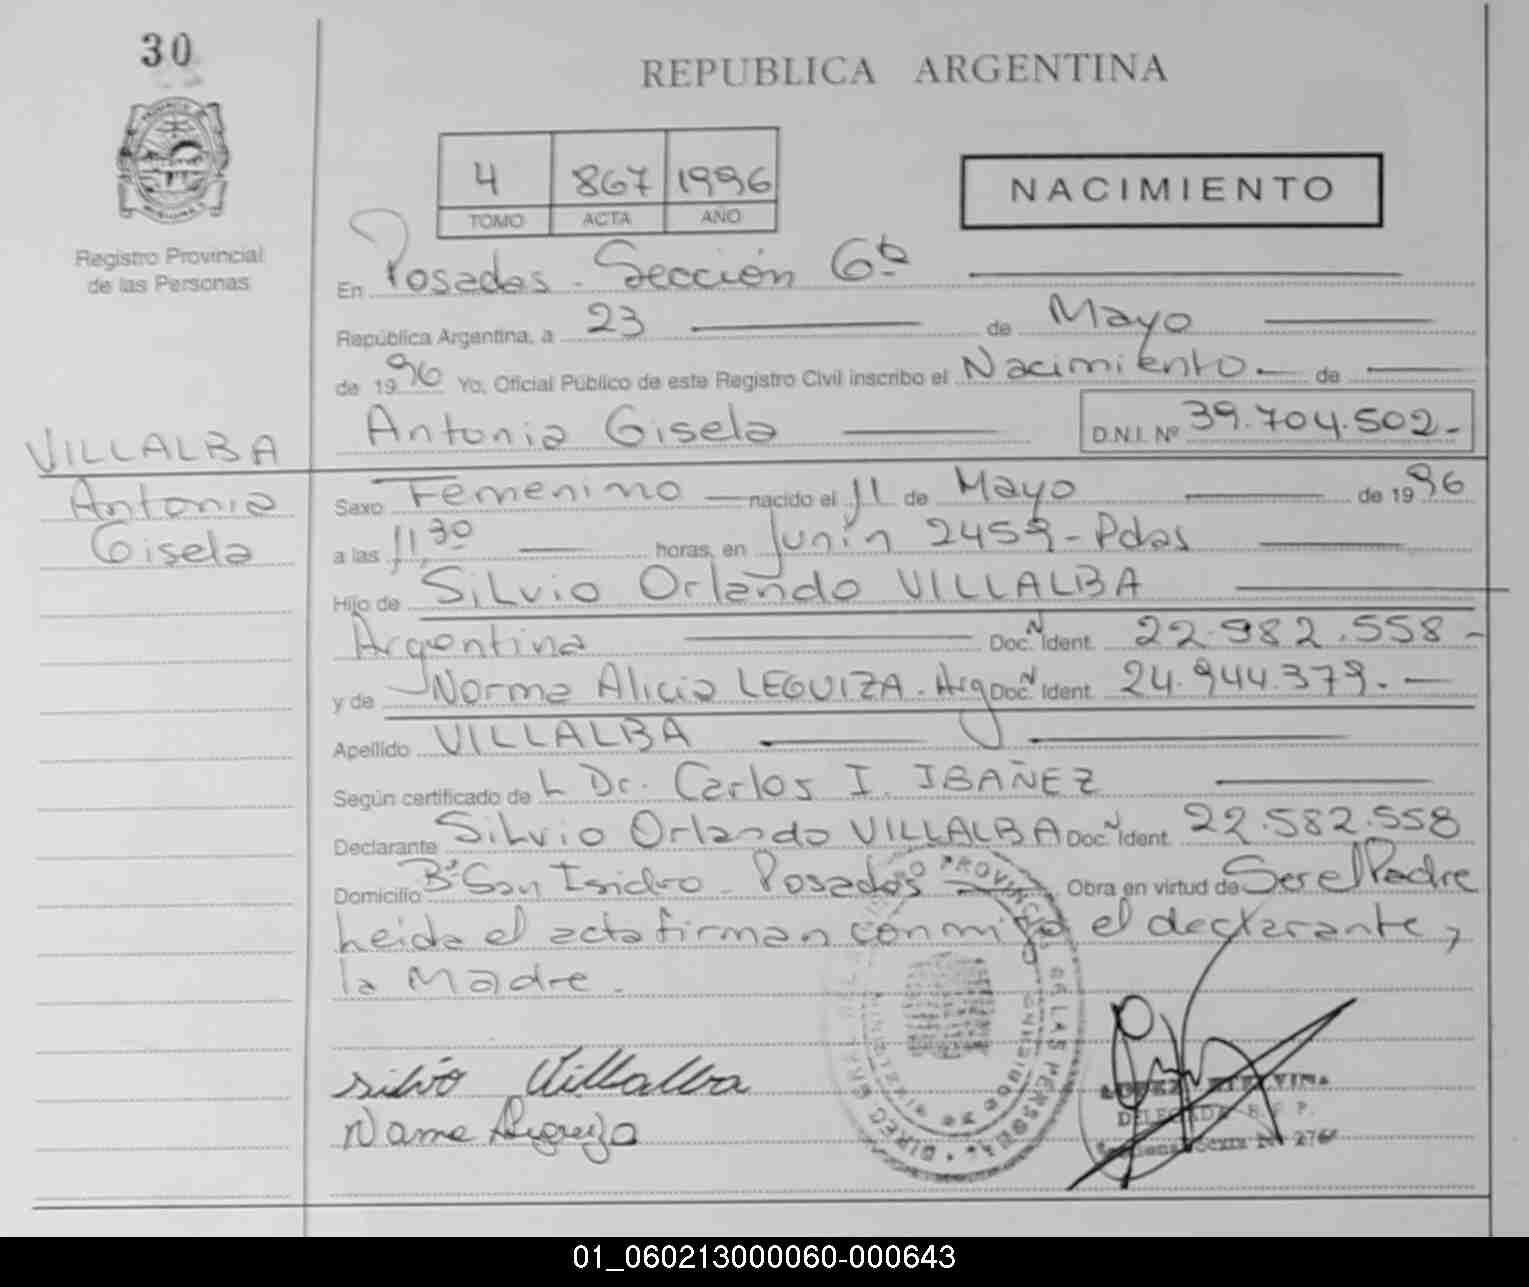 30
REPUBLICA ARGENTINA
4 867 1996
TOMO ACTA AÑO
NACIMIENTO
Registro Provincial
de las Personas
En Posadas - Sección 6ta
República Argentina, a 23 de Mayo
de 1996 Yo, Oficial Público de este Registro Civil inscribo el Nacimiento.- de
Antonia Gisela D.N.I. Nº 39.704.502-
VILLALBA
Antonia
Gisela
Sexo Femenino nacido el 11 de Mayo de 1996
a las 11,30 horas, en Junín 2459-Pdas
Hijo de Silvio Orlando VILLALBA
Argentina Doc. N Ident. 22.982.558-
y de Norma Alicia LEGUIZA. Arg Doc. N Ident. 24.944.379.-
Apellido VILLALBA
Según certificado de L Dr. Carlos I. IBAÑEZ
Declarante Silvio Orlando VILLALBA Doc. N Ident. 22.582.558
Domicilio Bº San Isidro - Posadas Obra en virtud de Ser el Padre
Leida el acta firman conmigo el declarante,
la Madre.
Silvio Villalba
DELEGADA R. P.
01_060213000060-000643